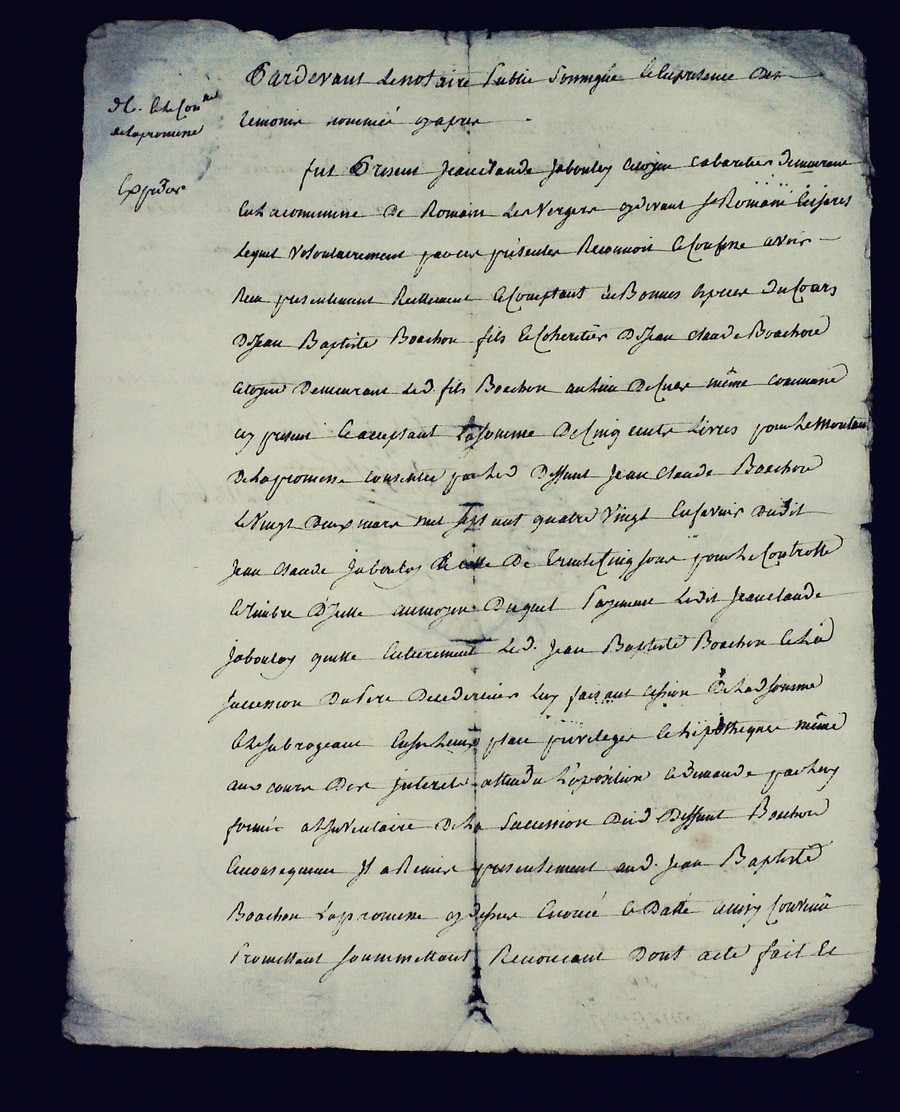 Pardevant Lenotaire Public Soussigné Et Enpresence Des
temoins nommés cyapres
de la promesse
fut Present Jean Claude Jabouley Citoyen Cabaretier Demeurant
En La commune De Romain Les Vergers cydevant St Romain
Lequel Volontairement par ces présentes Reconnoit Et Confesse avoir
Reçu presentement Reellement Et Comptant En Bonnes Especes Du Cours
De Jean Baptiste Boachon fils Et Coheritier De Jean Claude Boachon
Citoyen Demeurant Led fils Boachon au Lieu De même commune
cy present Et acceptant La somme De Cinq cents Livres pour Le Montant
De La promesse consentie par Led Deffunt Jean Claude Boachon
Le Vingt Deux mars mil sept cent quatre Vingt En faveur Dudit
Jean Claude Jabouley Et celle De trente Cinq sous pour Le Controlle
Et timbre D'Icelle aumoyen Duquel Payement Ledit Jean Claude
Jabouley quitte Entierement Led. Jean Baptiste Boachon Et La
Succession Du Pere De ce dernier Luy faisant cession De Lad somme
Et Le Subrogeant En son Lieu place privileges Et hipotheques même
aux cours Des Interets attendu L'oposition Et Demande par Luy
formée a L'Inventaire De La Succession Dud Deffunt Boachon
En consequence Il a Remis presentement aud. Jean Baptiste
Boachon La promesse cy dessus Enoncé Et Datté ainsy Convenu
Promettant Soummettant Renoncant Dont acte fait Et